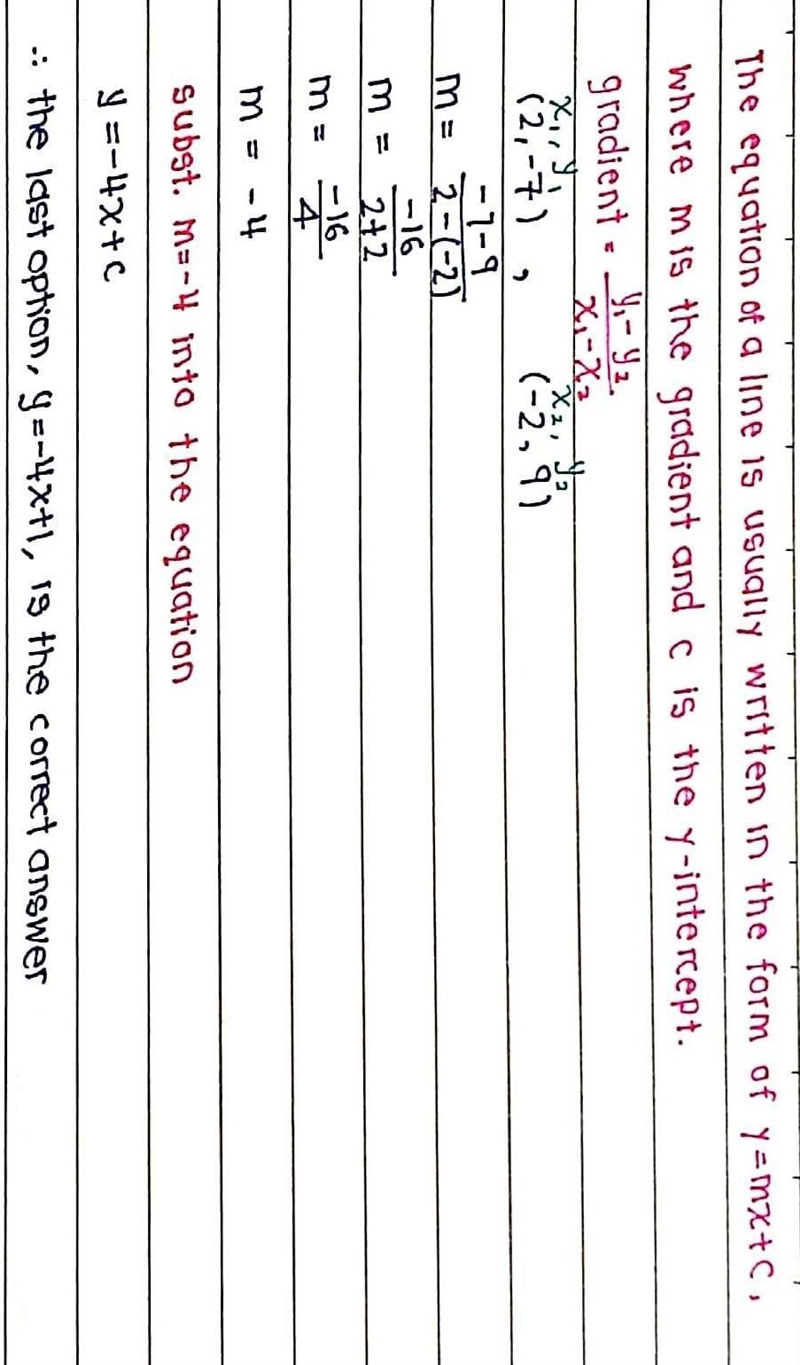 The equation of a line is usually written in the form of y=mx+c,
where m is the gradient and c is the y-intercept.
gradient = y₁-y₂/x₁-x₂
x₁, y₁ x₂, y₂
(2,-7) , (-2, 9)
m = -7-9/2-(-2)
m = -16/2+2
m = -16/4
m = -4
subst. m=-4 into the equation
y=-4x+c
∴ the last option, y=-4x+1, is the correct answer